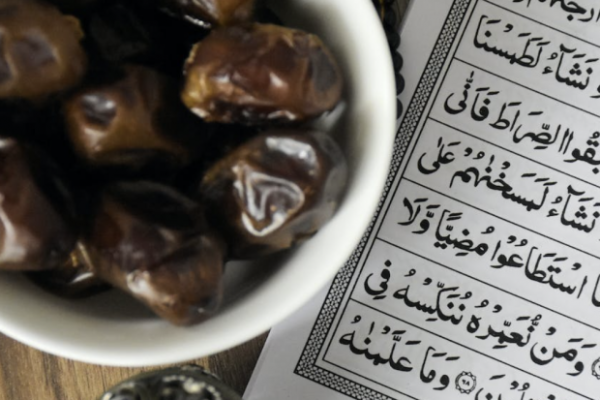 نَشَآءُ لَطَمَسْنَا
الصِّرَاطَ فَاَنّٰى
نَشَآءُ لَمَسَخْنٰهُمْ عَلٰى
اسْتَطَاعُوْا مُضِيًّا وَّلَا
وَمَنْ نُّعَمِّرْهُ نُنَكِّسْهُ فِى
وَمَا عَلَّمْنٰهُ